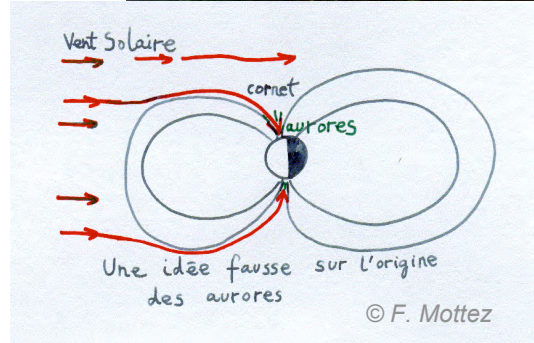 Vent Solaire
cornet
aurores
Une idée fausse sur l'origine
des aurores
© F. Mottez